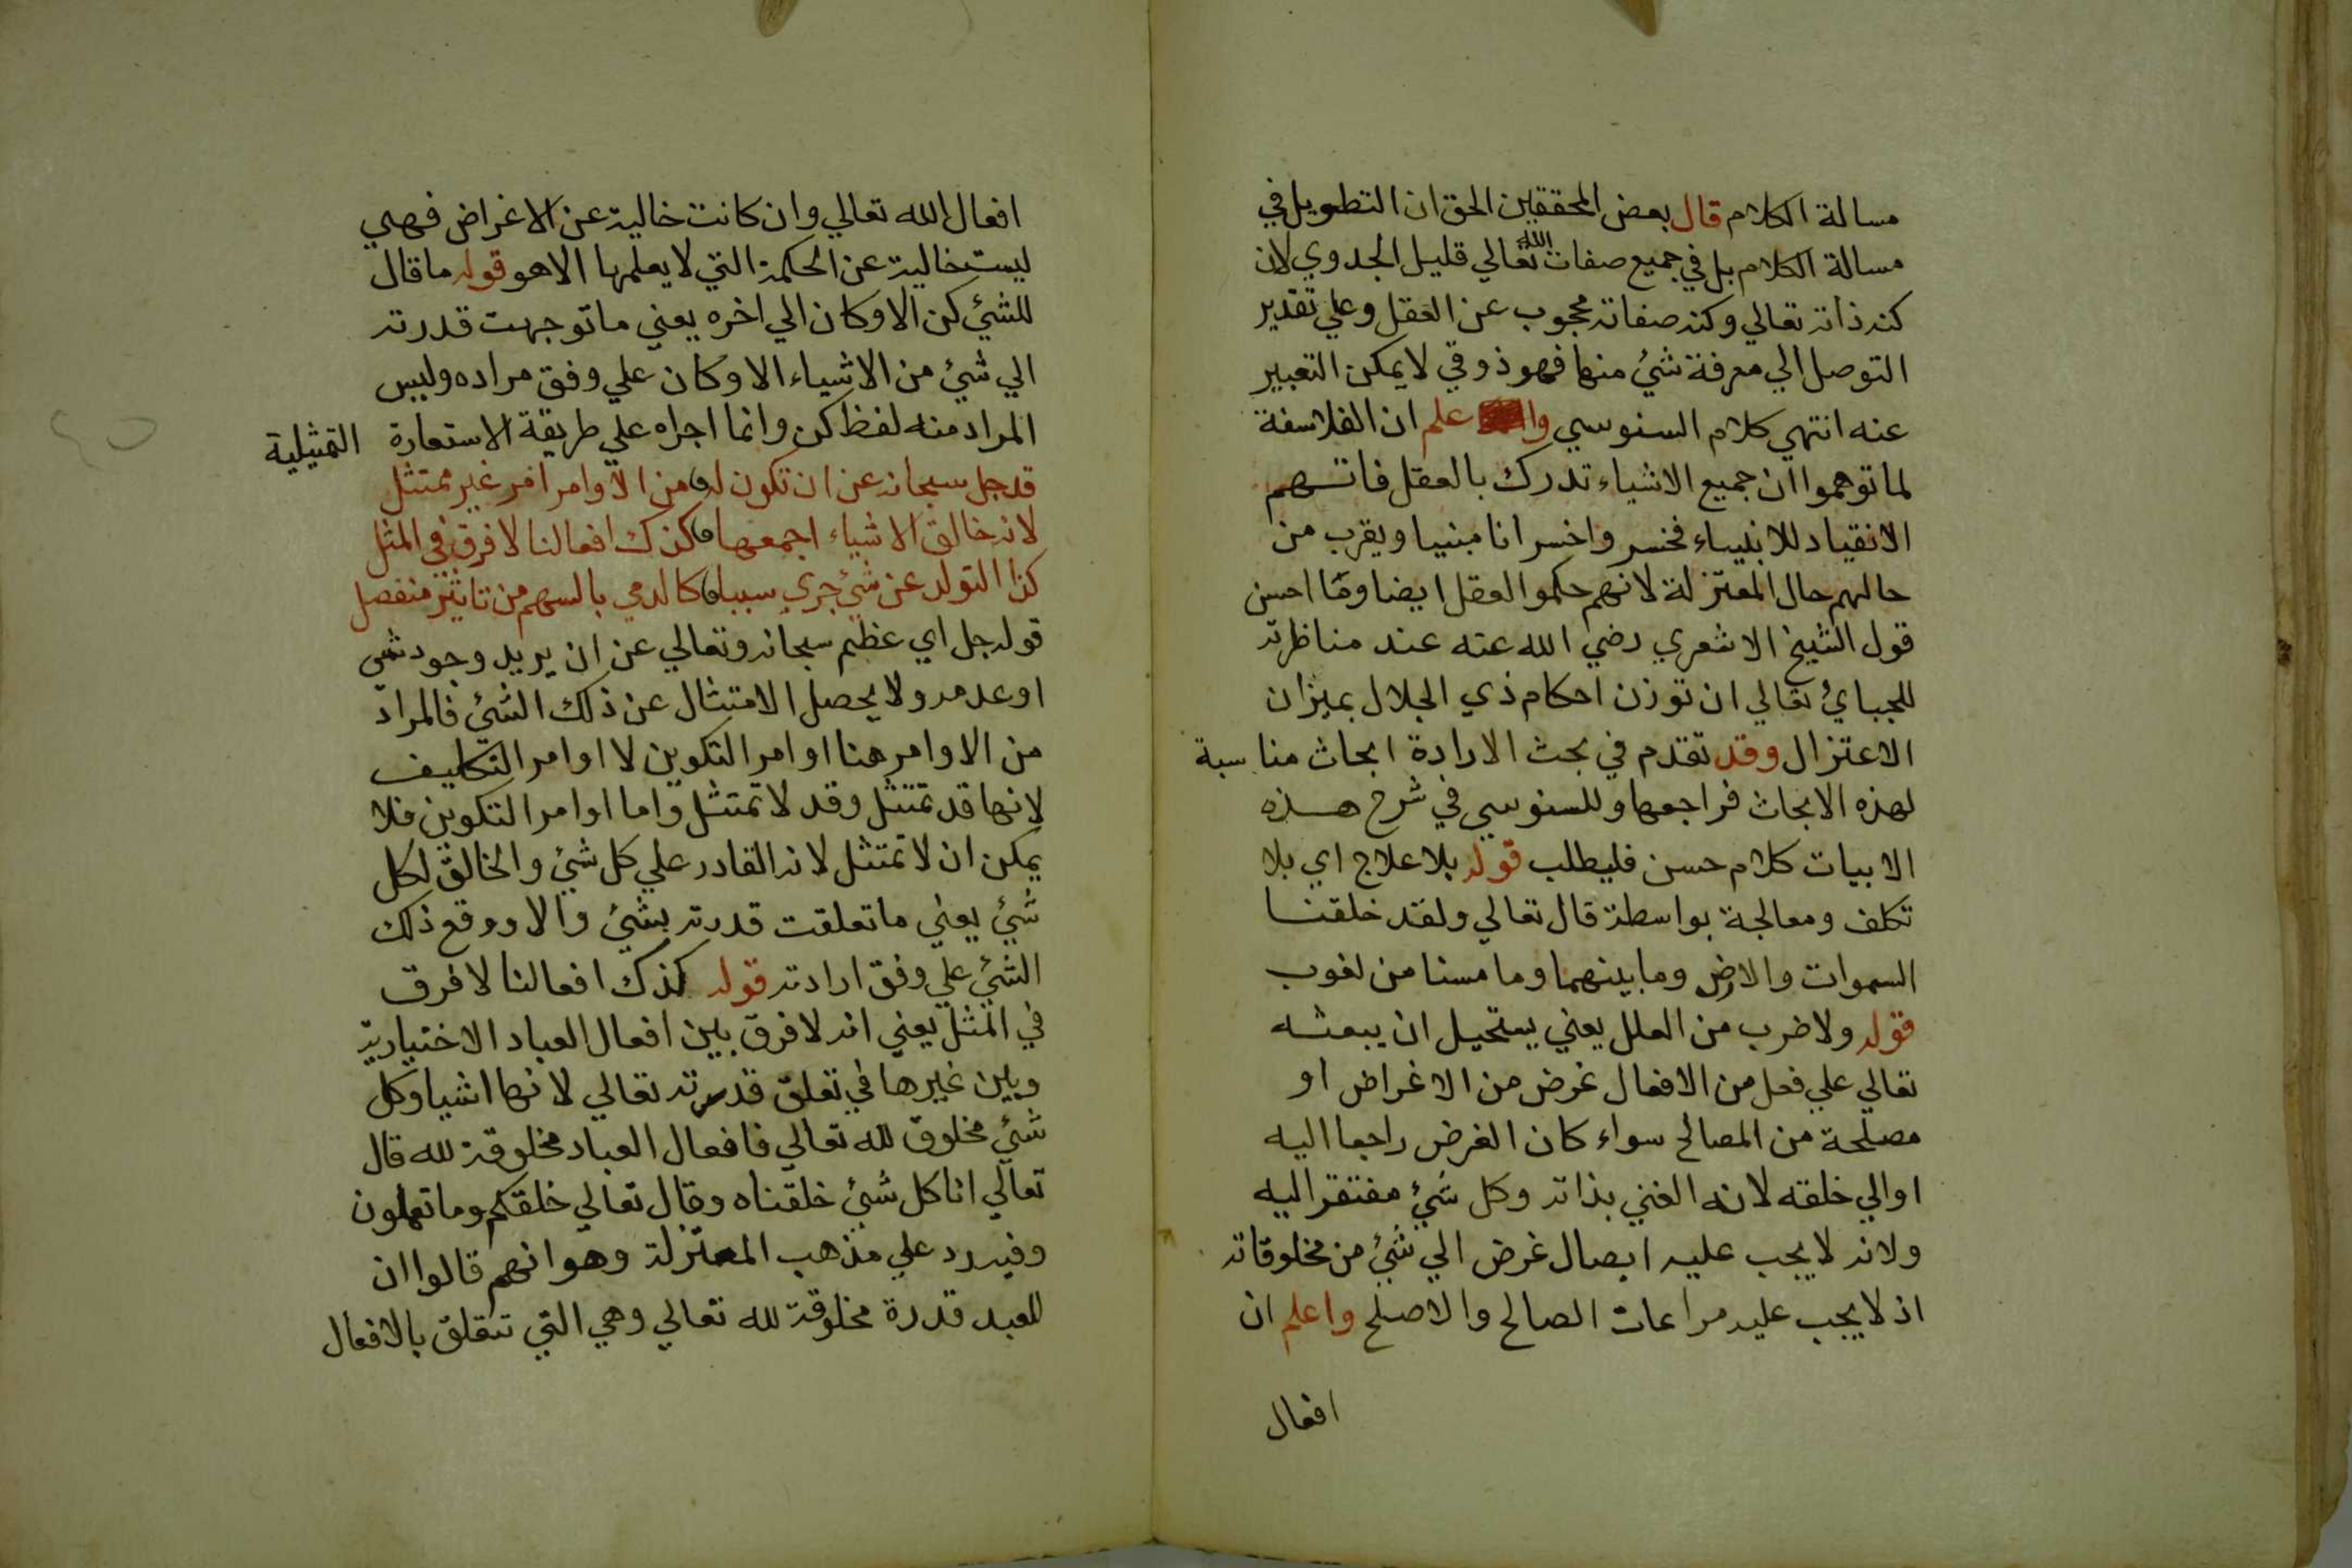 مسالة الكلام قال بعض المحققين الحق ان التطويل في
مسالة الكلام بل في جميع صفات الله تعالي قليل الجدوي لان
كنه ذاته تعالي وكنه صفاته محجوب عن العقل وعلي تقدير
التوصل الي معرفة شئ منها فهو ذوقي لا يمكن التعبير
عنه انتهي كلام السنوسي واعلم ان الفلاسفة
لما توهموا ان جميع الاشياء تدرك بالعقل فاتهم
الانقياد للانبياء فخسروا خسرانا مبنيا ويقرب من
حالهم حال المعتزلة لانهم حكموا العقل ايضا وما احسن
قول الشيخ الاشعري رضي الله عنه عند مناظرته
للجبائ تعالي ان توزن احكام ذي الجلال بميزان
الاعتزال وقد تقدم في بحث الارادة ابحاث مناسبة
لهذه الابحاث فراجعها وللسنوسي في شرح هذه
الابيات كلام حسن فليطلب قوله بلا علاج اي بلا
تكلف ومعالجة بواسطة قال تعالي ولقد خلقنا
السموات والارض وما بينهما وما مسنا من لغوب
قوله ولا ضرب من العلل يعني يستحيل ان يبعثه
تعالي علي فعل من الافعال غرض من الاغراض او
مصلحة من المصالح سواء كان الغرض راجعا اليه
او الي خلقه لانه الغني بذاته وكل شئ مفتقر اليه
ولانه لا يجب عليه ايصال غرض الي شئ من مخلوقاته
اذ لا يجب عليه مراعات الصالح والاصلح واعلم ان
افعال
افعال الله تعالي وان كانت خالية عن الاغراض فهي
ليست خالية عن الحكمة التي لا يعلمها الا هو قوله ما قال
للشئ كن الا وكان الي اخره يعني ما توجهت قدرته
الي شئ من الاشياء الا وكان علي وفق مراده وليس
المراد منه لفظ كن وانما اجراه علي طريقة الاستعارة التمثيلية
قد جل سبحانه عن ان تكون له من الاوامر امر غير ممتثل
لانه خالق الاشياء اجمعها كذك افعالنا لا فرق في المثل
كذا التولد عن شئ جري سببا كالدمي بالسهم من تاثير منفصل
قوله جل اي عظم سبحانه وتعالي عن ان يريد وجود شئ
او عدمه ولا يحصل الامتثال عن ذلك الشئ فالمراد
من الاوامر هنا اوامر التكوين لا اوامر التكليف
لانها قد تمتثل وقد لا تمتثل واما اوامر التكوين فلا
يمكن ان لا تمتثل لانه القادر علي كل شئ والخالق لكل
شئ يعني ما تعلقت قدرته بشئ والا ووقع ذلك
الشئ علي وفق ارادته قوله كذك افعالنا لا فرق
في المثل يعني انه لا فرق بين افعال العباد الاختيارية
وبين غيرها في تعلق قدرته تعالي لانها اشيا وكل
شئ مخلوق لله تعالي فافعال العباد مخلوقة لله قال
تعالي انا كل شئ خلقناه وقال تعالي خلقكم وما تعملون
وفيه رد علي مذهب المعتزلة وهو انهم قالوا ان
للعبد قدرة مخلوقة لله تعالي وهي التي تتعلق بالافعال